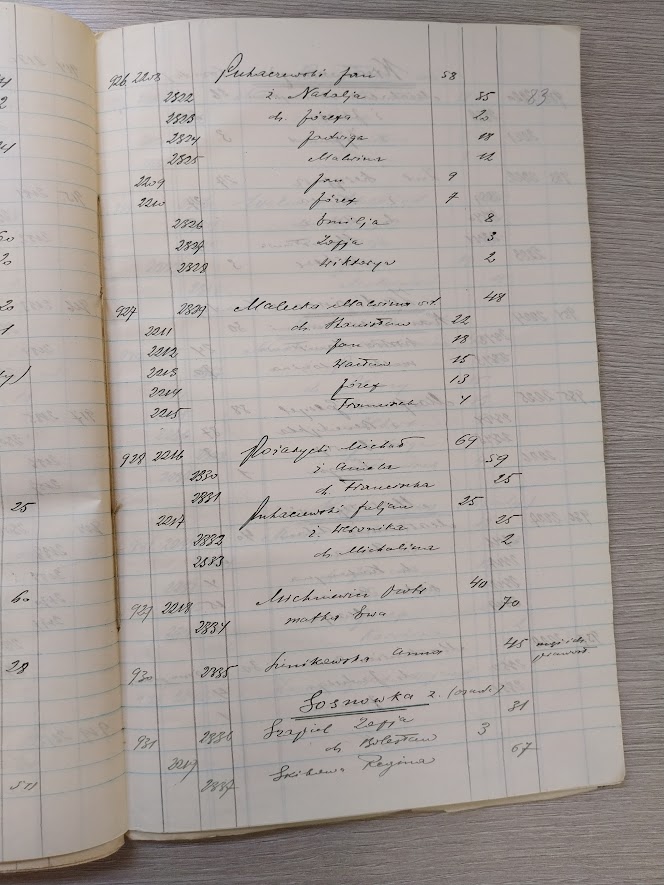 926 2208 Puhaczewski Jan 58
2822 ż. Natalja 55 83
2823 ch. Józefa 20
2824 Jadwiga 18
2825 Malwina 12
2209 Jan 9
2210 Józef 7
2826 Emilja 8
2827 Zofja 3
2828 Wiktorya 2
927 2829 Malecka Malwina 48
2211 ch. Stanisław 22
2212 Jan 18
2213 Wacław 15
2214 Józef 13
2215 Franciszek 7
928 2216 Michał 69
2830 ż. Aniela 59
2831 ch. Franciszka 25
2217 Puhaczewski Juljan 25
2832 ż. Weronika 25
2833 ch. Michalina 2
929 2218 Michniewicz Piotr 40
2834 matka Ewa 70
930 2835 Anna 45
Sosnowka z.
931 2836 Szpiel Zofja 31
2219 ch. Bolesław 3
2837 Regina 67
25
60
28
511